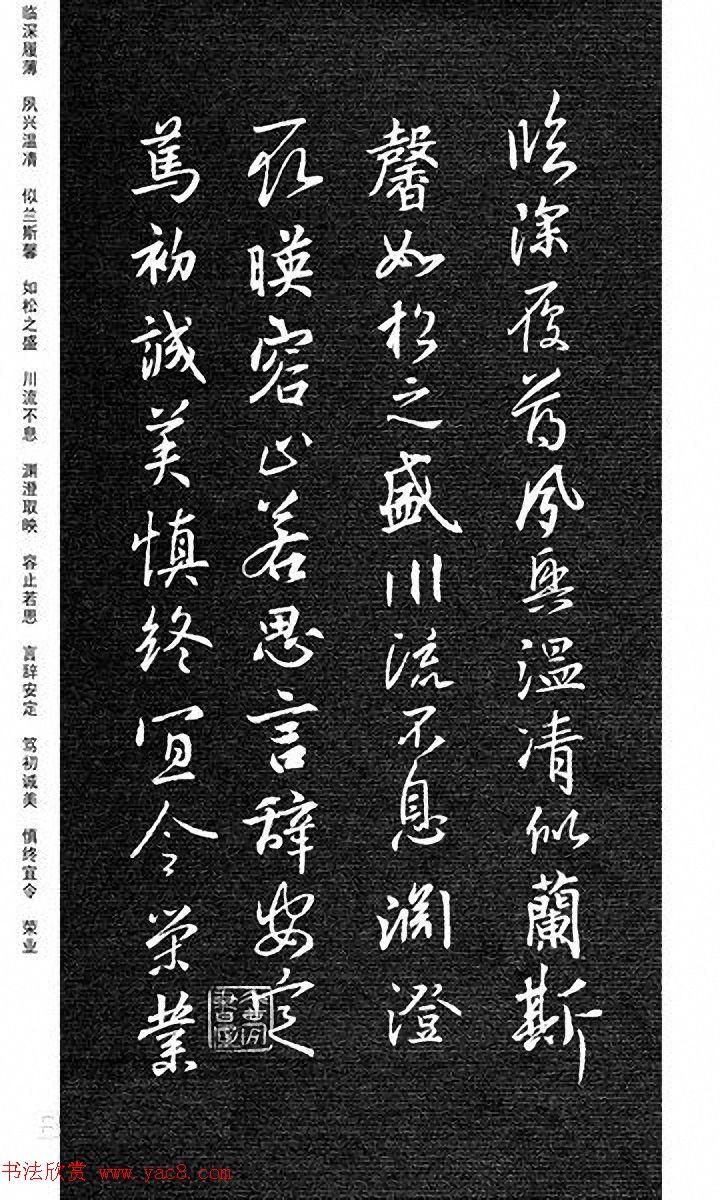 臨深履薄夙興溫凊似蘭斯
馨如松之盛川流不息淵澄
取暎容止若思言辞安定
篤初誠美慎終宜令榮業
临深履薄 夙兴温凊 似兰斯馨 如松之盛 川流不息 渊澄取映 容止若思 言辞安定 笃初诚美 慎终宜令 荣业
书法欣赏 www.yac8.com